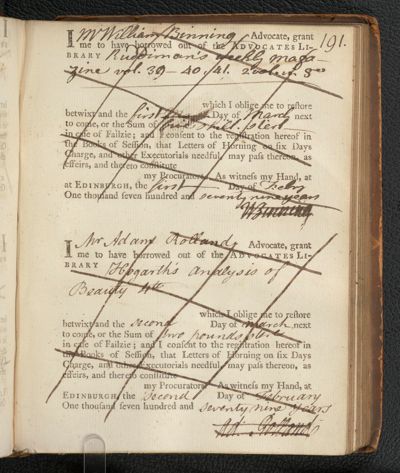 191.
I Mr William Binning Advocate, grant
me to have borrowed out of the ADVOCATES LI-
BRARY Ruddiman's weekly maga-
zine vol. 39 - 40. 41.
which I oblige me to restore
betwixt and the first Day of March next
to come, or the Sum of
in case of Failzie; and I consent to the registration hereof in
the Books of Session, that Letters of Horning on six Days
Charge, and other Executorials needful, may pass thereon, as
effeirs, and thereto constitute
my Procurators. As witness my Hand, at
at EDINBURGH, the first Day of Febry
One thousand seven hundred and seventy nine years
WBinning
I Mr Adam Rolland Advocate, grant
me to have borrowed out of the ADVOCATES LI-
BRARY Hogarth's Analysis of
Beauty 4to
which I oblige me to restore
betwixt and the second Day of March next
to come, or the Sum of two pounds sterl
in case of Failzie; and I consent to the registration hereof in
the Books of Session, that Letters of Horning on six Days
Charge, and other Executorials needful, may pass thereon, as
effeirs, and thereto constitute
my Procurators. As witness my Hand, at
EDINBURGH, the second Day of February
One thousand seven hundred and seventy nine years
Ad. Rolland